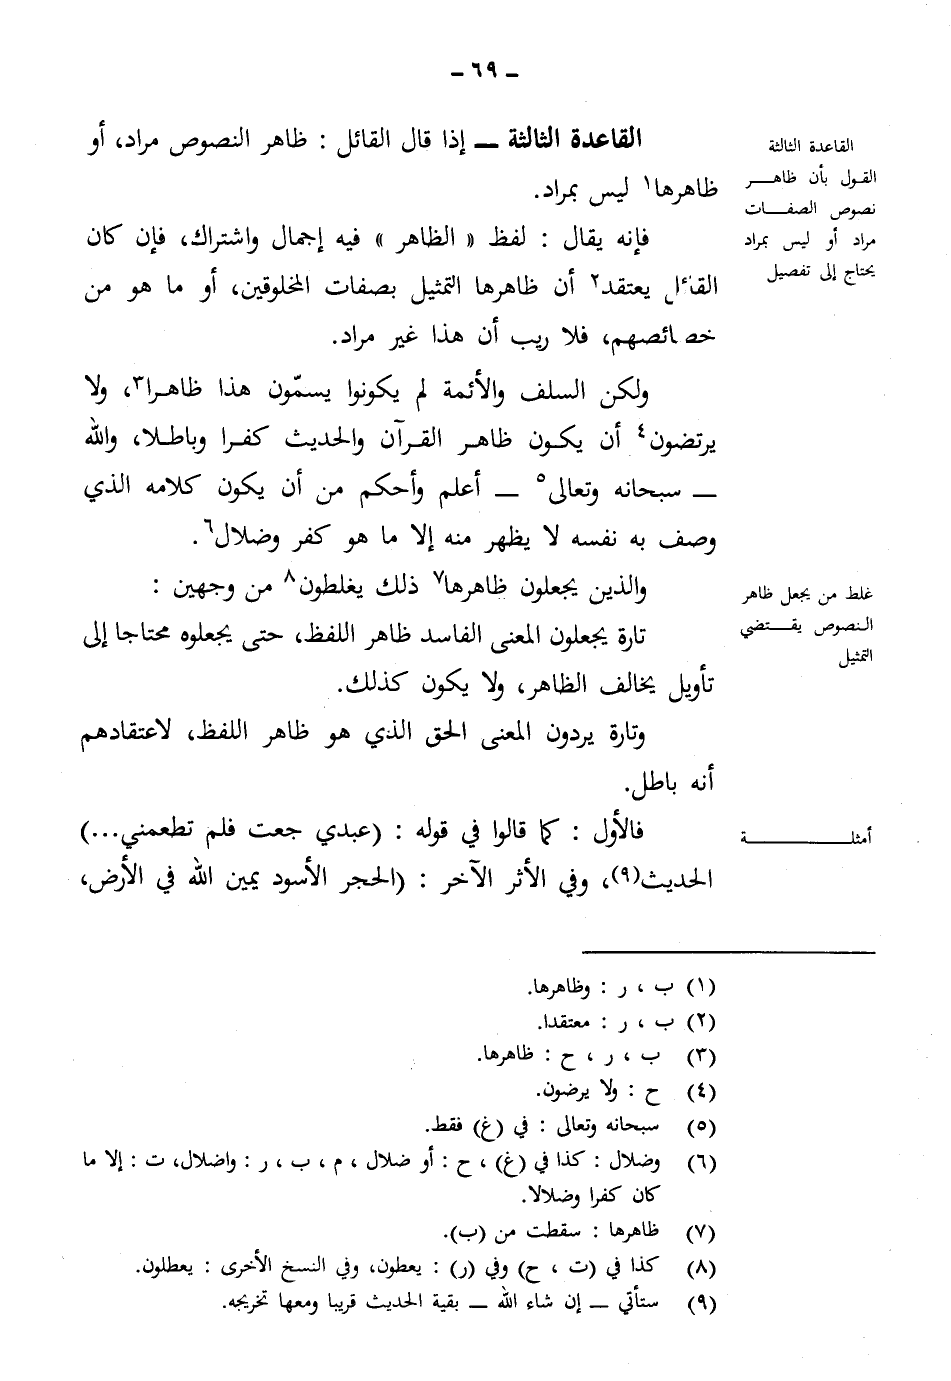 ـ ٦٩ ـ
القاعدة الثالثة ـ إذا قال القائل : ظاهر النصوص مراد، أو
ظاهرها١ ليس بمراد.
فإنه يقال : لفظ « الظاهر » فيه إجمال واشتراك، فإن كان
القائل يعتقد٢ أن ظاهرها التمثيل بصفات المخلوقين، أو ما هو من
خصائصهم، فلا ريب أن هذا غير مراد.
ولكن السلف والأئمة لم يكونوا يسمّون هذا ظاهرا٣، ولا
يرتضون٤ أن يكون ظاهر القرآن والحديث كفرا وباطلا، والله
ـ سبحانه وتعالى٥ ـ أعلم وأحكم من أن يكون كلامه الذي
وصف به نفسه لا يظهر منه إلا ما هو كفر وضلال٦.
والذين يجعلون ظاهرها٧ ذلك يغلطون٨ من وجهين :
تارة يجعلون المعنى الفاسد ظاهر اللفظ، حتى يجعلوه محتاجا إلى
تأويل يخالف الظاهر، ولا يكون كذلك.
وتارة يردون المعنى الحق الذي هو ظاهر اللفظ، لاعتقادهم
أنه باطل.
فالأول : كما قالوا في قوله : (عبدي جعت فلم تطعمني...)
الحديث(٩)، وفي الأثر الآخر : (الحجر الأسود يمين الله في الأرض،
القاعدة الثالثة
القول بأن ظاهر
نصوص الصفات
مراد أو ليس بمراد
يحتاج إلى تفصيل
غلط من يجعل ظاهر
النصوص يقتضي
التمثيل
أمثلة
(١) ب ، ر : وظاهرها.
(٢) ب ، ر : معتقدا.
(٣) ب ، ر ، ح : ظاهرها.
(٤) ح : ولا يرضون.
(٥) سبحانه وتعالى : في (غ) فقط.
(٦) وضلال : كذا في (غ) ، ح : أو ضلال ، م ، ب ، ر : واضلال، ت : إلا ما
كان كفرا وضلالا.
(٧) ظاهرها : سقطت من (ب).
(٨) كذا في (ت ، ح) وفي (ر) : يعطون، وفي النسخ الأخرى : يعطلون.
(٩) ستأتي ـ إن شاء الله ـ بقية الحديث قريبا ومعها تخريجه.